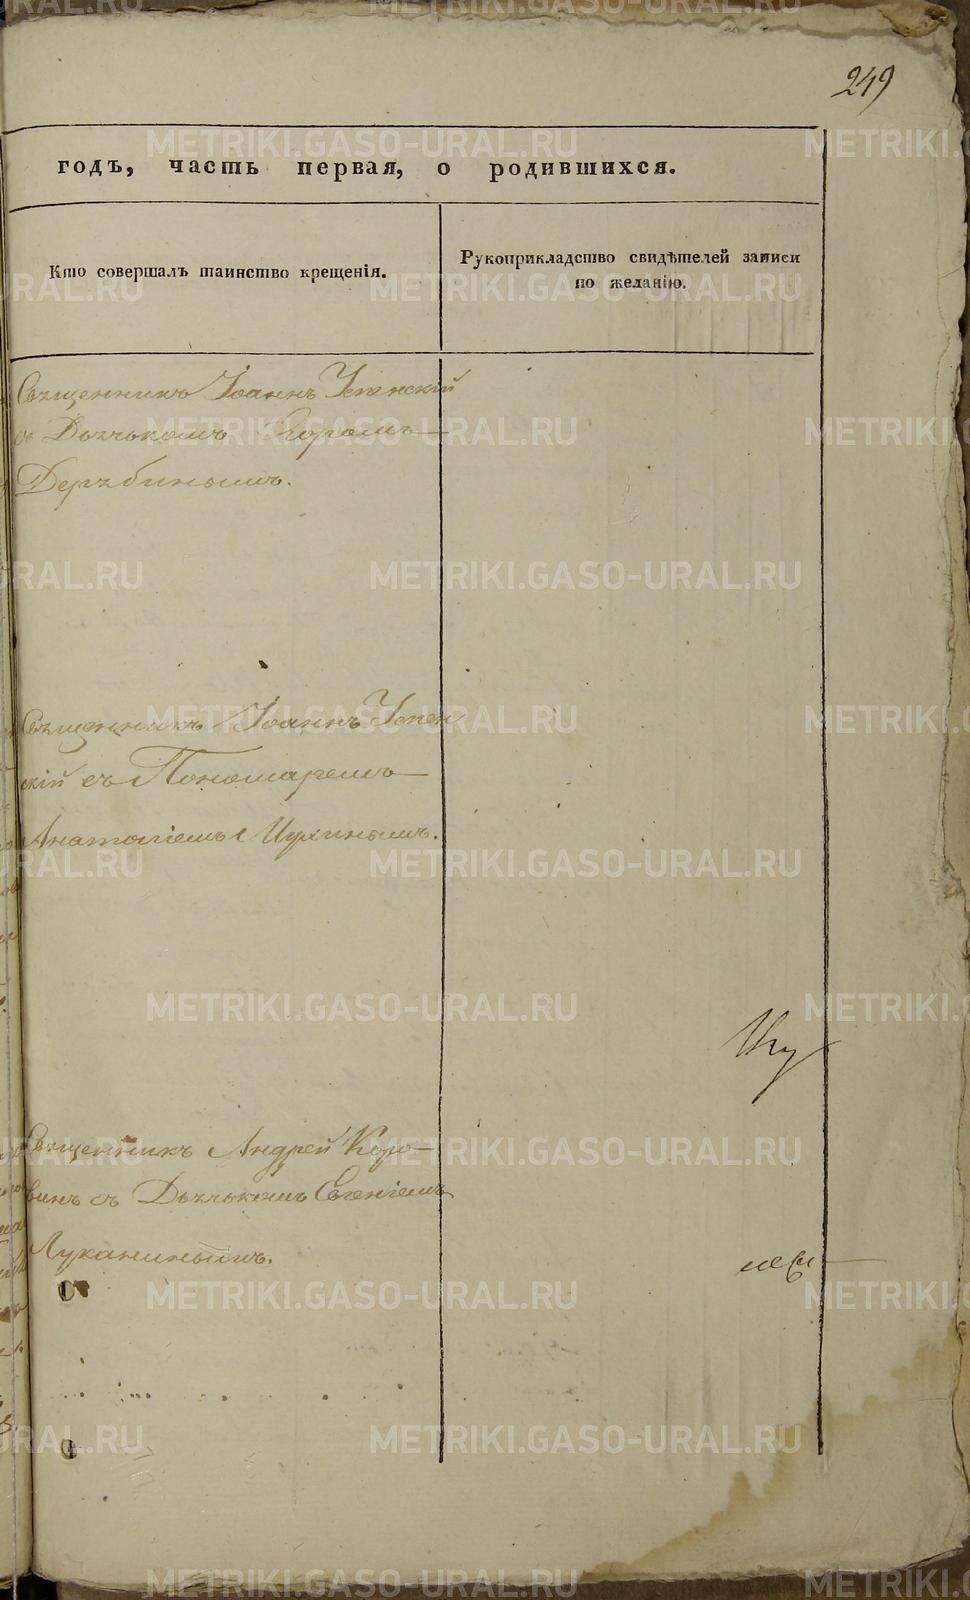 249
годъ, часть первая, о родившихся.
Кто совершалъ таинство крещенія.
Рукоприкладство свидѣтелей записи
по желанію.
Священникъ Іоаннъ Успенскій
съ Дьячькомъ Егоромъ
Дерябинымъ.
Священникъ Іоаннъ Успен
скій съ Пономаремъ
Анатоліемъ
Священникъ Андрей Коро-
винъ съ Дьячькомъ Евгеніемъ
Луканинымъ.
METRIKI.GASO-URAL.RU